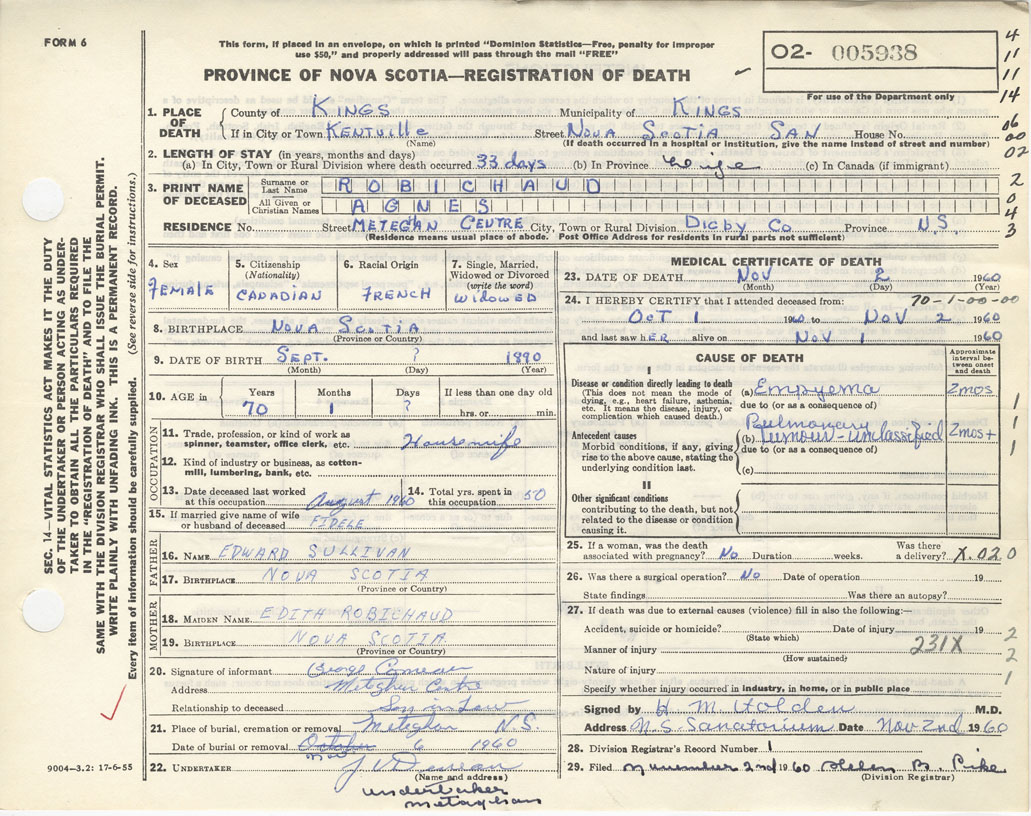 FORM 6
This form, if placed in an envelope, on which is printed "Dominion Statistics—Free, penalty for improper
use $50," and properly addressed will pass through the mail "FREE"
PROVINCE OF NOVA SCOTIA—REGISTRATION OF DEATH
02- 005938
For use of the Department only
4
11
11
14
06
00
02
2
0
4
3
1. PLACE OF DEATH
County of KINGS Municipality of KINGS
If in City or Town KENTVILLE Street NOVA SCOTIA SAN House No.
(Name) (If death occurred in a hospital or institution, give the name instead of street and number)
2. LENGTH OF STAY (in years, months and days)
(a) In City, Town or Rural Division where death occurred 33 days (b) In Province (c) In Canada (if immigrant)
3. PRINT NAME OF DECEASED
Surname or Last Name ROBICHAUD
All Given or Christian Names AGNES
RESIDENCE No. Street METEGHAN CENTRE City, Town or Rural Division DIGBY CO Province N.S.
(Residence means usual place of abode. Post Office Address for residents in rural parts not sufficient)
4. Sex FEMALE
5. Citizenship (Nationality) CANADIAN
6. Racial Origin FRENCH
7. Single, Married, Widowed or Divorced (write the word) WIDOWED
8. BIRTHPLACE NOVA SCOTIA
(Province or Country)
9. DATE OF BIRTH SEPT. ? 1890
(Month) (Day) (Year)
10. AGE in Years Months Days If less than one day old
70 1 ? hrs. or min.
OCCUPATION
11. Trade, profession, or kind of work as spinner, teamster, office clerk, etc. Housewife
12. Kind of industry or business, as cotton-mill, lumbering, bank, etc.
13. Date deceased last worked at this occupation August 1960
14. Total yrs. spent in this occupation 50
15. If married give name of wife or husband of deceased FIDELE
FATHER
16. NAME EDWARD SULLIVAN
17. BIRTHPLACE NOVA SCOTIA
(Province or Country)
MOTHER
18. MAIDEN NAME EDITH ROBICHAUD
19. BIRTHPLACE NOVA SCOTIA
(Province or Country)
20. Signature of informant George Comeau
Address Meteghan Centre
Relationship to deceased Son in Law
21. Place of burial, cremation or removal Meteghan N.S.
Date of burial or removal October Nov 6 1960
22. UNDERTAKER
(Name and address)
undertaker
MEDICAL CERTIFICATE OF DEATH
23. DATE OF DEATH NOV 2 1960
(Month) (Day) (Year)
70-1-00-00
24. I HEREBY CERTIFY that I attended deceased from:
OCT 1 1960 to NOV 2 1960
and last saw hER alive on NOV 1 1960
CAUSE OF DEATH
Approximate interval between onset and death
I
Disease or condition directly leading to death
(This does not mean the mode of dying, e.g., heart failure, asthenia, etc. It means the disease, injury, or complication which caused death.)
(a) Empyema 2mos
due to (or as a consequence of)
Antecedent causes
Morbid conditions, if any, giving rise to the above cause, stating the underlying condition last.
(b) Pulmonary tumour - unclassified 2mos+
due to (or as a consequence of)
(c)
1
1
1
II
Other significant conditions
contributing to the death, but not related to the disease or condition causing it.
25. If a woman, was the death associated with pregnancy? No Duration weeks. Was there a delivery? X.020
26. Was there a surgical operation? No Date of operation 19
State findings Was there an autopsy?
27. If death was due to external causes (violence) fill in also the following:—
Accident, suicide or homicide? Date of injury 19
(State which)
Manner of injury 231X
(How sustained)
Nature of injury
Specify whether injury occurred in industry, in home, or in public place
2
2
1
Signed by H. M. Holden M.D.
Address N.S. Sanatorium Date Nov 2nd 1960
28. Division Registrar's Record Number 1
29. Filed November 2nd 1960 Helen B. Pike
(Division Registrar)
SEC. 14—VITAL STATISTICS ACT MAKES IT THE DUTY
OF THE UNDERTAKER OR PERSON ACTING AS UNDER-
TAKER TO OBTAIN ALL THE PARTICULARS REQUIRED
IN THE "REGISTRATION OF DEATH" AND TO FILE THE
SAME WITH THE DIVISION REGISTRAR WHO SHALL ISSUE THE BURIAL PERMIT.
WRITE PLAINLY WITH UNFADING INK. THIS IS A PERMANENT RECORD.
Every item of information should be carefully supplied. (See reverse side for instructions.)
9004-3.2: 17-6-55